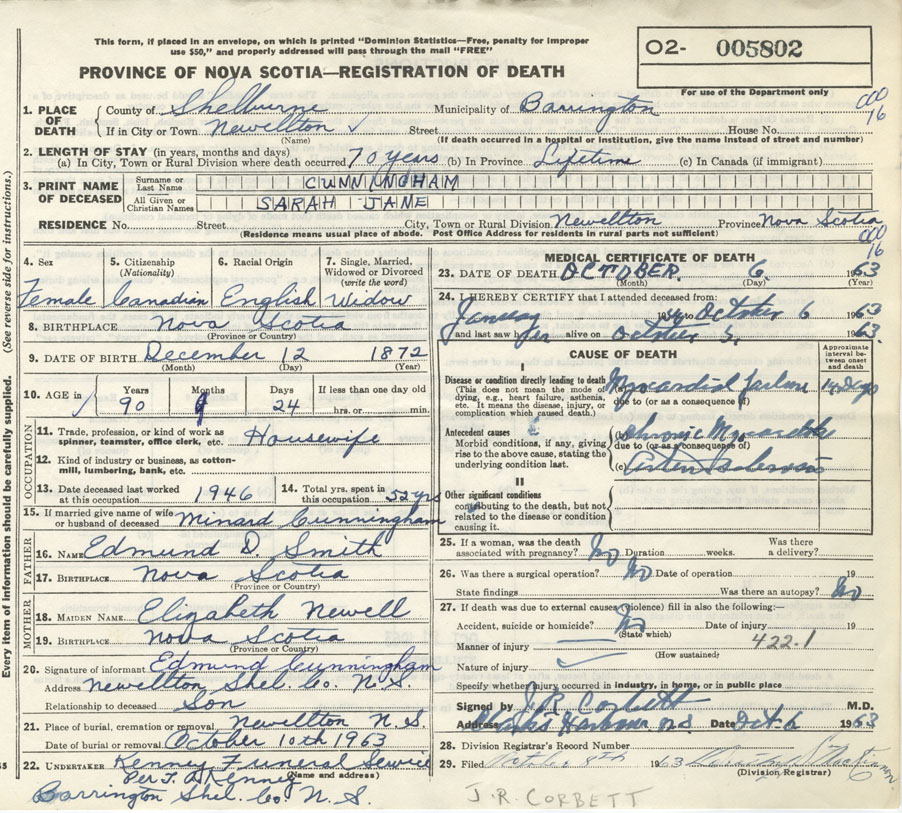 This form, if placed in an envelope, on which is printed "Dominion Statistics—Free, penalty for improper
use $50," and properly addressed will pass through the mail "FREE"
PROVINCE OF NOVA SCOTIA—REGISTRATION OF DEATH
O2- 005802
For use of the Department only
1. PLACE OF DEATH County of Shelburne Municipality of Barrington
If in City or Town Newellton Street House No.
(Name) (If death occurred in a hospital or institution, give the name instead of street and number)
000
16
2. LENGTH OF STAY (in years, months and days)
(a) In City, Town or Rural Division where death occurred 70 years (b) In Province Lifetime (c) In Canada (if immigrant)
3. PRINT NAME OF DECEASED Surname or Last Name CUNNINGHAM
All Given or Christian Names SARAH JANE
RESIDENCE No. Street City, Town or Rural Division Newellton Province Nova Scotia
(Residence means usual place of abode. Post Office Address for residents in rural parts not sufficient)
000
16
4. Sex 5. Citizenship (Nationality) 6. Racial Origin 7. Single, Married, Widowed or Divorced (write the word)
Female Canadian English Widow
8. BIRTHPLACE Nova Scotia
(Province or Country)
9. DATE OF BIRTH December 12 1872
(Month) (Day) (Year)
10. AGE in Years Months Days If less than one day old
90 9 24 hrs. or min.
11. Trade, profession, or kind of work as spinner, teamster, office clerk, etc. Housewife
12. Kind of industry or business, as cotton-mill, lumbering, bank, etc.
13. Date deceased last worked at this occupation 1946 14. Total yrs. spent in this occupation 52 yrs
15. If married give name of wife or husband of deceased Minard Cunningham
OCCUPATION
FATHER
16. NAME Edmund D. Smith
17. BIRTHPLACE Nova Scotia
(Province or Country)
MOTHER
18. MAIDEN NAME Elizabeth Newell
19. BIRTHPLACE Nova Scotia
(Province or Country)
20. Signature of informant Edmund Cunningham
Address Newellton Shel. Co. N.S.
Relationship to deceased Son
21. Place of burial, cremation or removal Newellton N.S.
Date of burial or removal October 10th 1963
22. UNDERTAKER Kenney Funeral Service
(Name and address)
Per Kenney
Barrington Shel. Co. N.S.
MEDICAL CERTIFICATE OF DEATH
23. DATE OF DEATH OCTOBER 6 1963
(Month) (Day) (Year)
24. I HEREBY CERTIFY that I attended deceased from:
January to October 6 1963
and last saw her alive on October 5. 1963.
CAUSE OF DEATH
Approximate interval between onset and death
I
Disease or condition directly leading to death (a) Myocardial failure 14 days
(This does not mean the mode of dying, e.g., heart failure, asthenia, etc. It means the disease, injury, or complication which caused death.)
due to (or as a consequence of)
Antecedent causes (b) Chronic Myocarditis
Morbid conditions, if any, giving rise to the above cause, stating the underlying condition last.
due to (or as a consequence of)
(c) Arteriosclerosis
II
Other significant conditions
contributing to the death, but not related to the disease or condition causing it.
25. If a woman, was the death associated with pregnancy? No Duration weeks. Was there a delivery?
26. Was there a surgical operation? No Date of operation 19
State findings Was there an autopsy? No
27. If death was due to external causes (violence) fill in also the following:—
Accident, suicide or homicide? No Date of injury 19
(State which)
Manner of injury 422.1
(How sustained)
Nature of injury
Specify whether injury occurred in industry, in home, or in public place
Signed by J.R. Corbett M.D.
Address Clarks Harbour N.S. Date Oct. 6 1963
28. Division Registrar's Record Number
29. Filed October 8th 1963
(Division Registrar)
J.R. CORBETT
Every item of information should be carefully supplied. (See reverse side for instructions.)